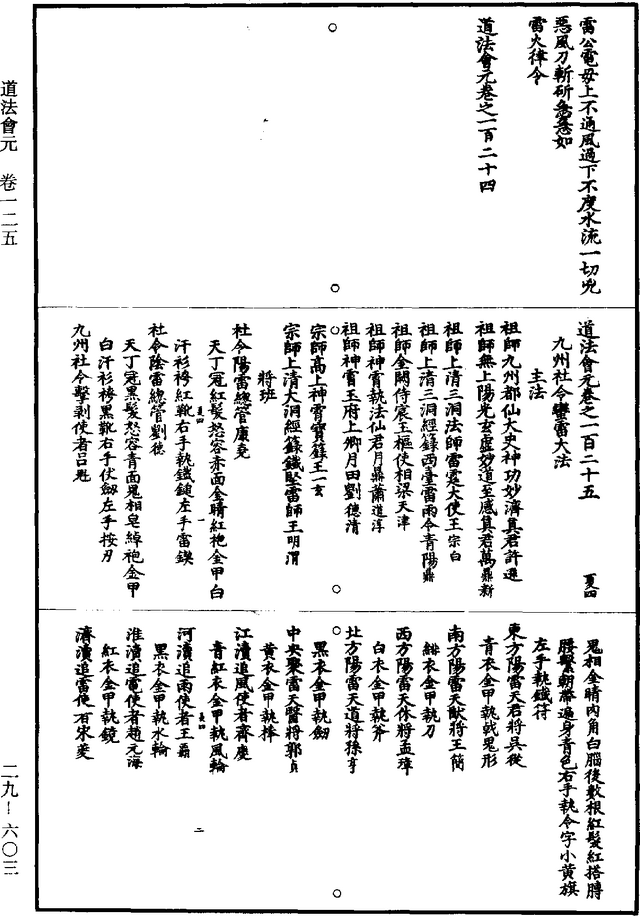 道法會元　卷一二五
二九–六〇三
雷公電母上不通風過下不度水流一切兇
惡風刀斬斫急急如
雷火律令
道法會元卷之一百二十四
道法會元卷之一百二十五　夏四
九州社令蠻雷大法
主法
祖師九州都仙大史神功妙濟真君許遜
祖師無上陽光玄虛妙道至感真君萬鼎新
祖師上清三洞法師雷霆大使王宗白
祖師上清三洞經籙西臺雷雨令青陽鼎
祖師金闕侍宸玉樞使相梁天津
祖師神霄執法仙君月鼎蕭道淳
祖師神霄玉府上卿月田劉德清
宗師高上神霄寶籙王一玄
宗師上清大洞經籙鐵壁雷師王明渭
將班
社令陽雷總管康堯
天丁冠紅髮怒容赤面金睛紅袍金甲白
汗衫袴紅靴右手執鐵鎚左手雷鍥
社令陰雷總管劉德
天丁冠黑髮怒容青面鬼相皂綽袍金甲
白汗衫袴黑靴右手仗劒左手按刃
九州社令擊剥使者呂魁
夏四　一
鬼相金睛肉角白腦後數根紅髮紅搭膊
腰繫朝帶遍身青色右手執令字小黃旗
左手執鐵符
東方陽雷天君將吳從
青衣金甲執戟鬼形
南方陽雷天猷將王簡
緋衣金甲執刀
西方陽雷天休將孟璋
白衣金甲執斧
北方陽雷天道將孫亨
黑衣金甲執劒
中央聚雷天醫將郭貞
黃衣金甲執棒
江瀆追風使者齊慶
青紅衣金甲執風輪
河瀆追雨使者王霸
黑衣金甲執水輪
淮瀆追電使者趙元海
紅衣金甲執鏡
濟瀆追雷使者宋菱
夏四　二